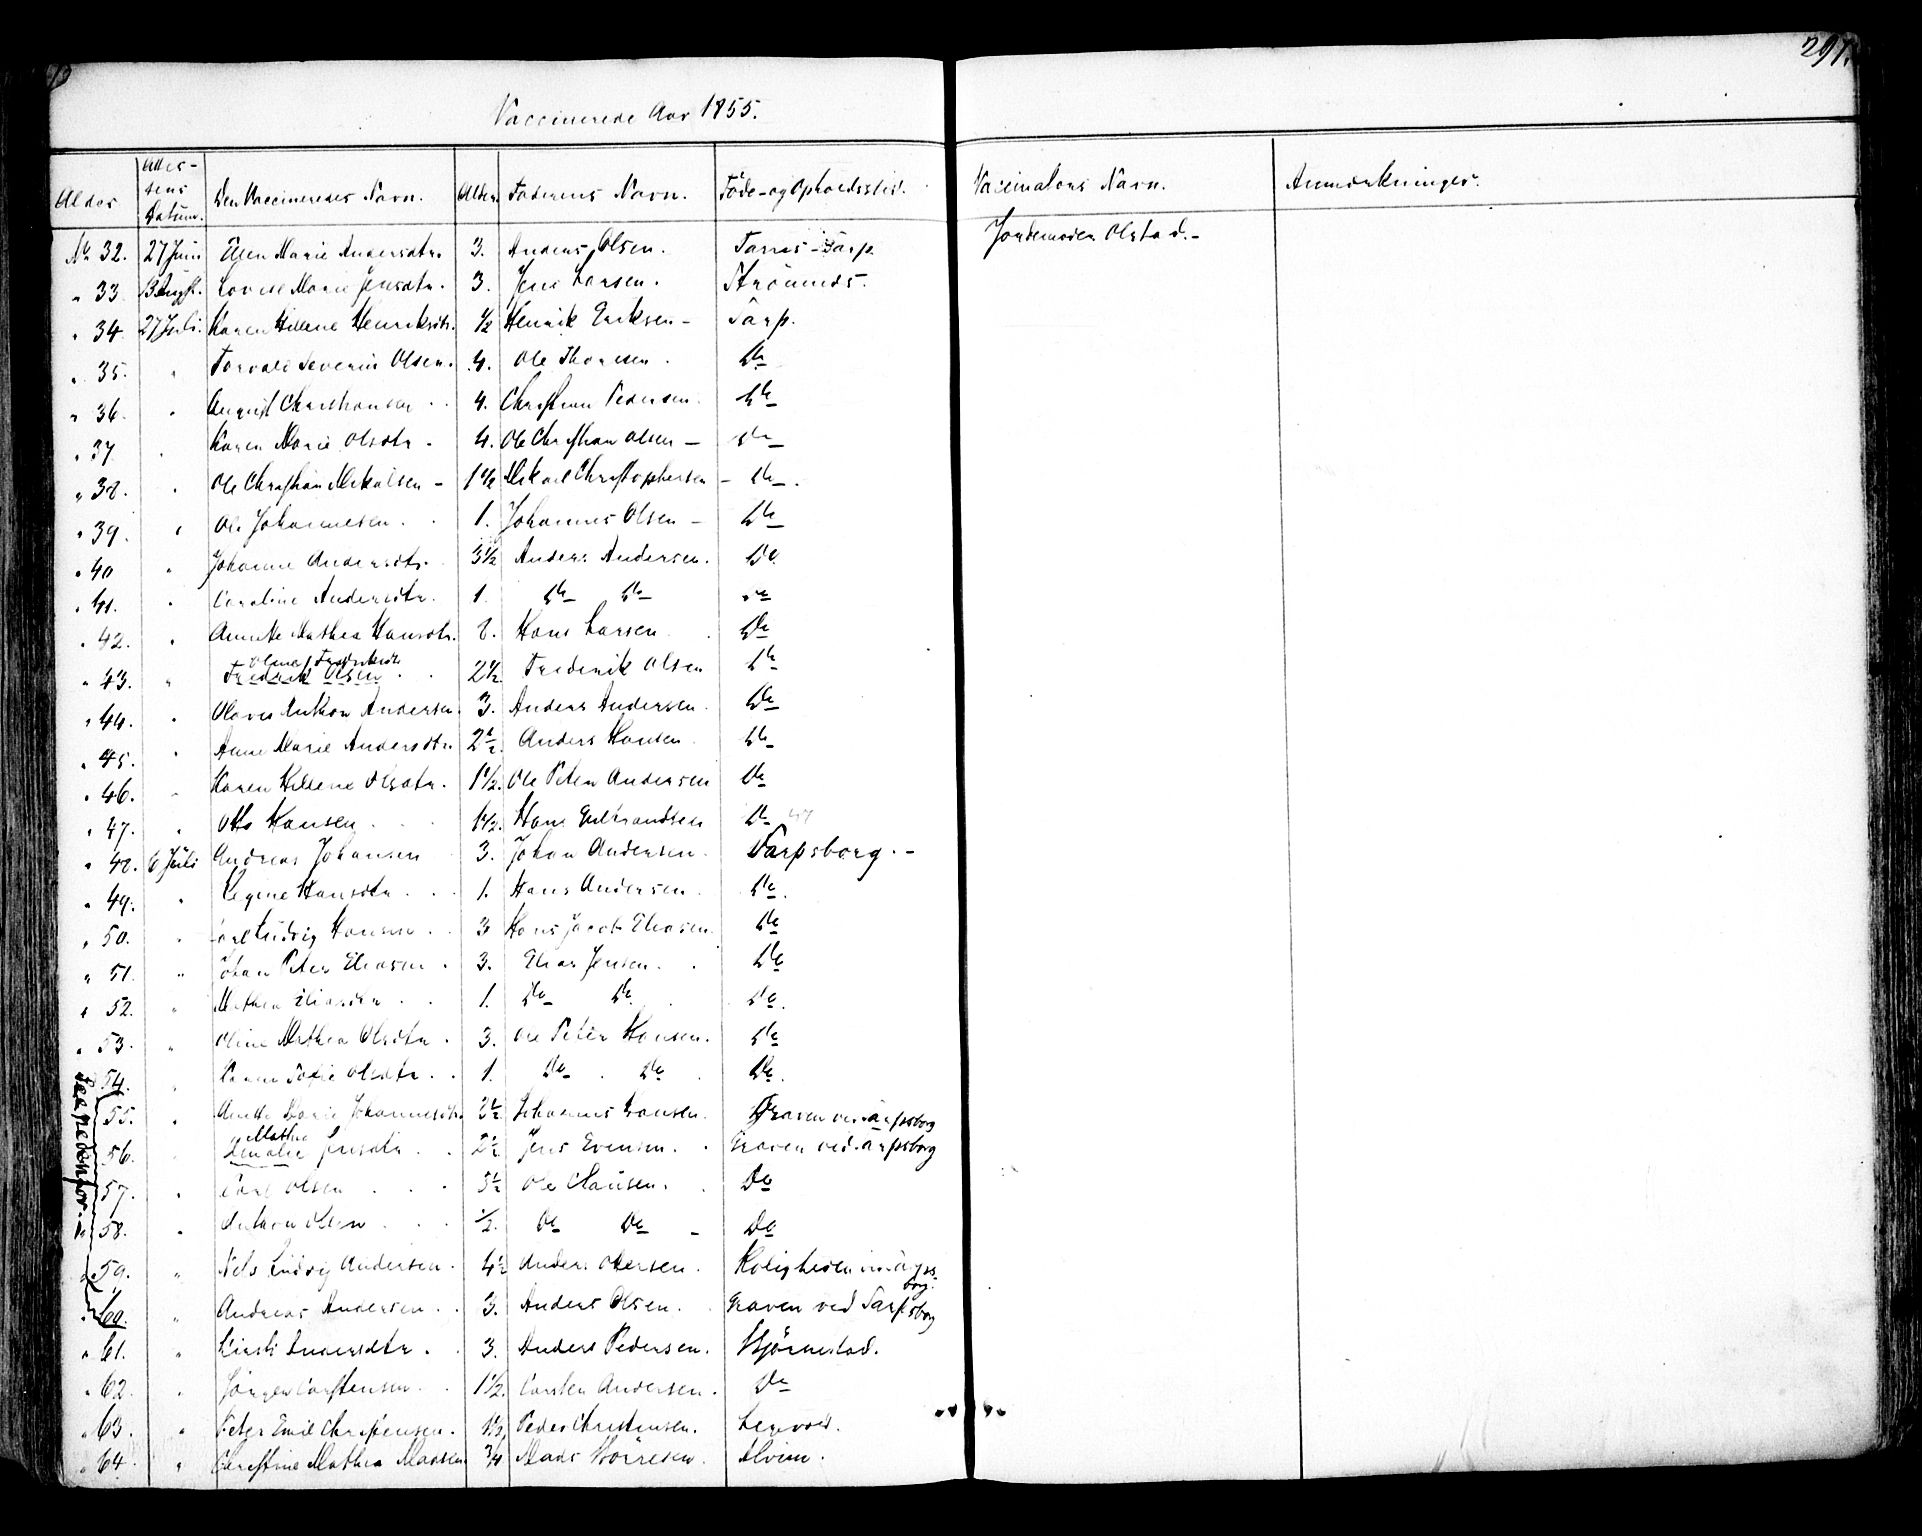 297.
Vaccinerede Aar 1855.
Alder Attes-tens Datum. Den Vaccineredes Navn. Alder. Faderens Navn. Føde- og Opholdssted. Vaccinators Navn. Anmærkninger.
No 32. 27 Juni Ellen Marie Andersdtr. 3. Anders Olsen. Jordemoder Olstad.-
" 33. Lovise Marie Jensdtr. 3. Jens Larsen.
" 34. 27 Juli. Karen Helene Henriksdtr. 1/2 Henrik Eriksen - Sarp.
" 35. " Torvald Severin Olsen. 4. Ole Thoresen. Do
" 36. " August Christiansen 4. Christian Pedersen. Do
" 37. " Karen Marie Olsdtr. 4. Ole Christian Olsen - Do
" 38. " Ole Christian Mikalsen - 1 1/2 Mikael Christophersen - Do.
" 39. " Ole Johannesen. 1. Johannes Olsen - Do
" 40 " Johanne Andersdtr. 3 1/2 Anders Andersen. Do.
" 41. " Caroline Andersdtr. 1. Do Do Do
" 42. " Annette Mathea Hansdtr. Hans Larsen Do
" 43. " Fredrik Olsen 2 1/2 Frederik Olsen Do
" 44. " Olaves Anthon Andersen. 3. Anders Andersen. Do
" 45. " Anne Marie Andersdtr. 2 1/2. Anders Hansen Do
" 46. " Karen Helene Olsdtr. 1 1/2. Ole Peter Andersen Do
" 47. " Otto Hansen 1 1/2. Hans Gulbrandsen Do
" 48. 6 Juli Andreas Johansen 3. Johan Andersen. Sarpsborg.-
" 49. " Hansdtr. 1. Hans Andersen. Do.
" 50. " Carl Ludvig Hansen 3 Hans Jacob Eliasen. Do
" 51. " Johan Peter Eliasen. 3. Elias Jensen. Do
" 52. " Mathea Eliasdtr. 1. Do Do Do.
" 53. " Oline Mathea Olsdtr. 3. Ole Peter Hansen. Do
" 54. " Sofie Olsdtr. 1. Do Do Do.
" 55. " Anette Marie Johannesdtr. 2 1/2 Johannes Hansen. Graven ved Sarpsborg
Mathea
56. " Jensdtr. 2 1/2 Jens Evensen. Graven ved Sarpsborg
57. " Carl Olsen 5 1/2 Ole Clausen. Do
58. " Anthon Olsen 1/2. Do Do - Do
" 59. " Nels Ludvig Andersen. 4 1/2 Anders Roligheden ved Sarps-
borg.
" 60. " Andreas Andersen 3. Anders Olsen. Graven ved Sarpsborg
" 61. " Kirsti Andersdtr. 3. Anders Pedersen. Hjørnestad.
" 62. " Jørgen Carstensen 1 1/2. Carsten Andersen. Do
" 63. " Peter Emil Christensen. 1 1/2, Peder Christensen.
" 64. " Christine Mathea Madsen 3/4 Mads Alvim.